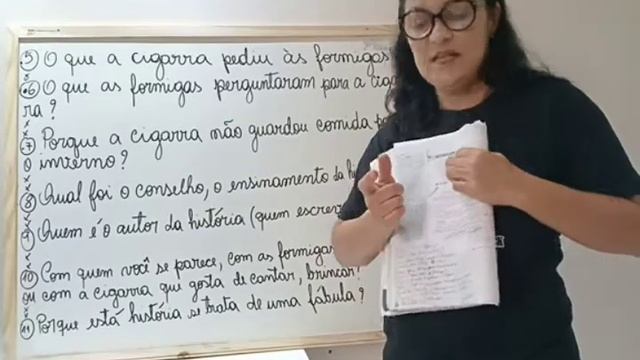 5) O que a cigarra pediu às formigas
6) O que as formigas perguntaram para a ciga
ra?
7) Porque a cigarra não guardou comida pa
o inverno?
8) Qual foi o conselho, o ensinamento da hi
9) Quem é o autor da história (quem escrev
10) Com quem você se parece, com as formigas
ou com a cigarra que gosta de cantar, brincar?
11) Porque está história se trata de uma fábula?